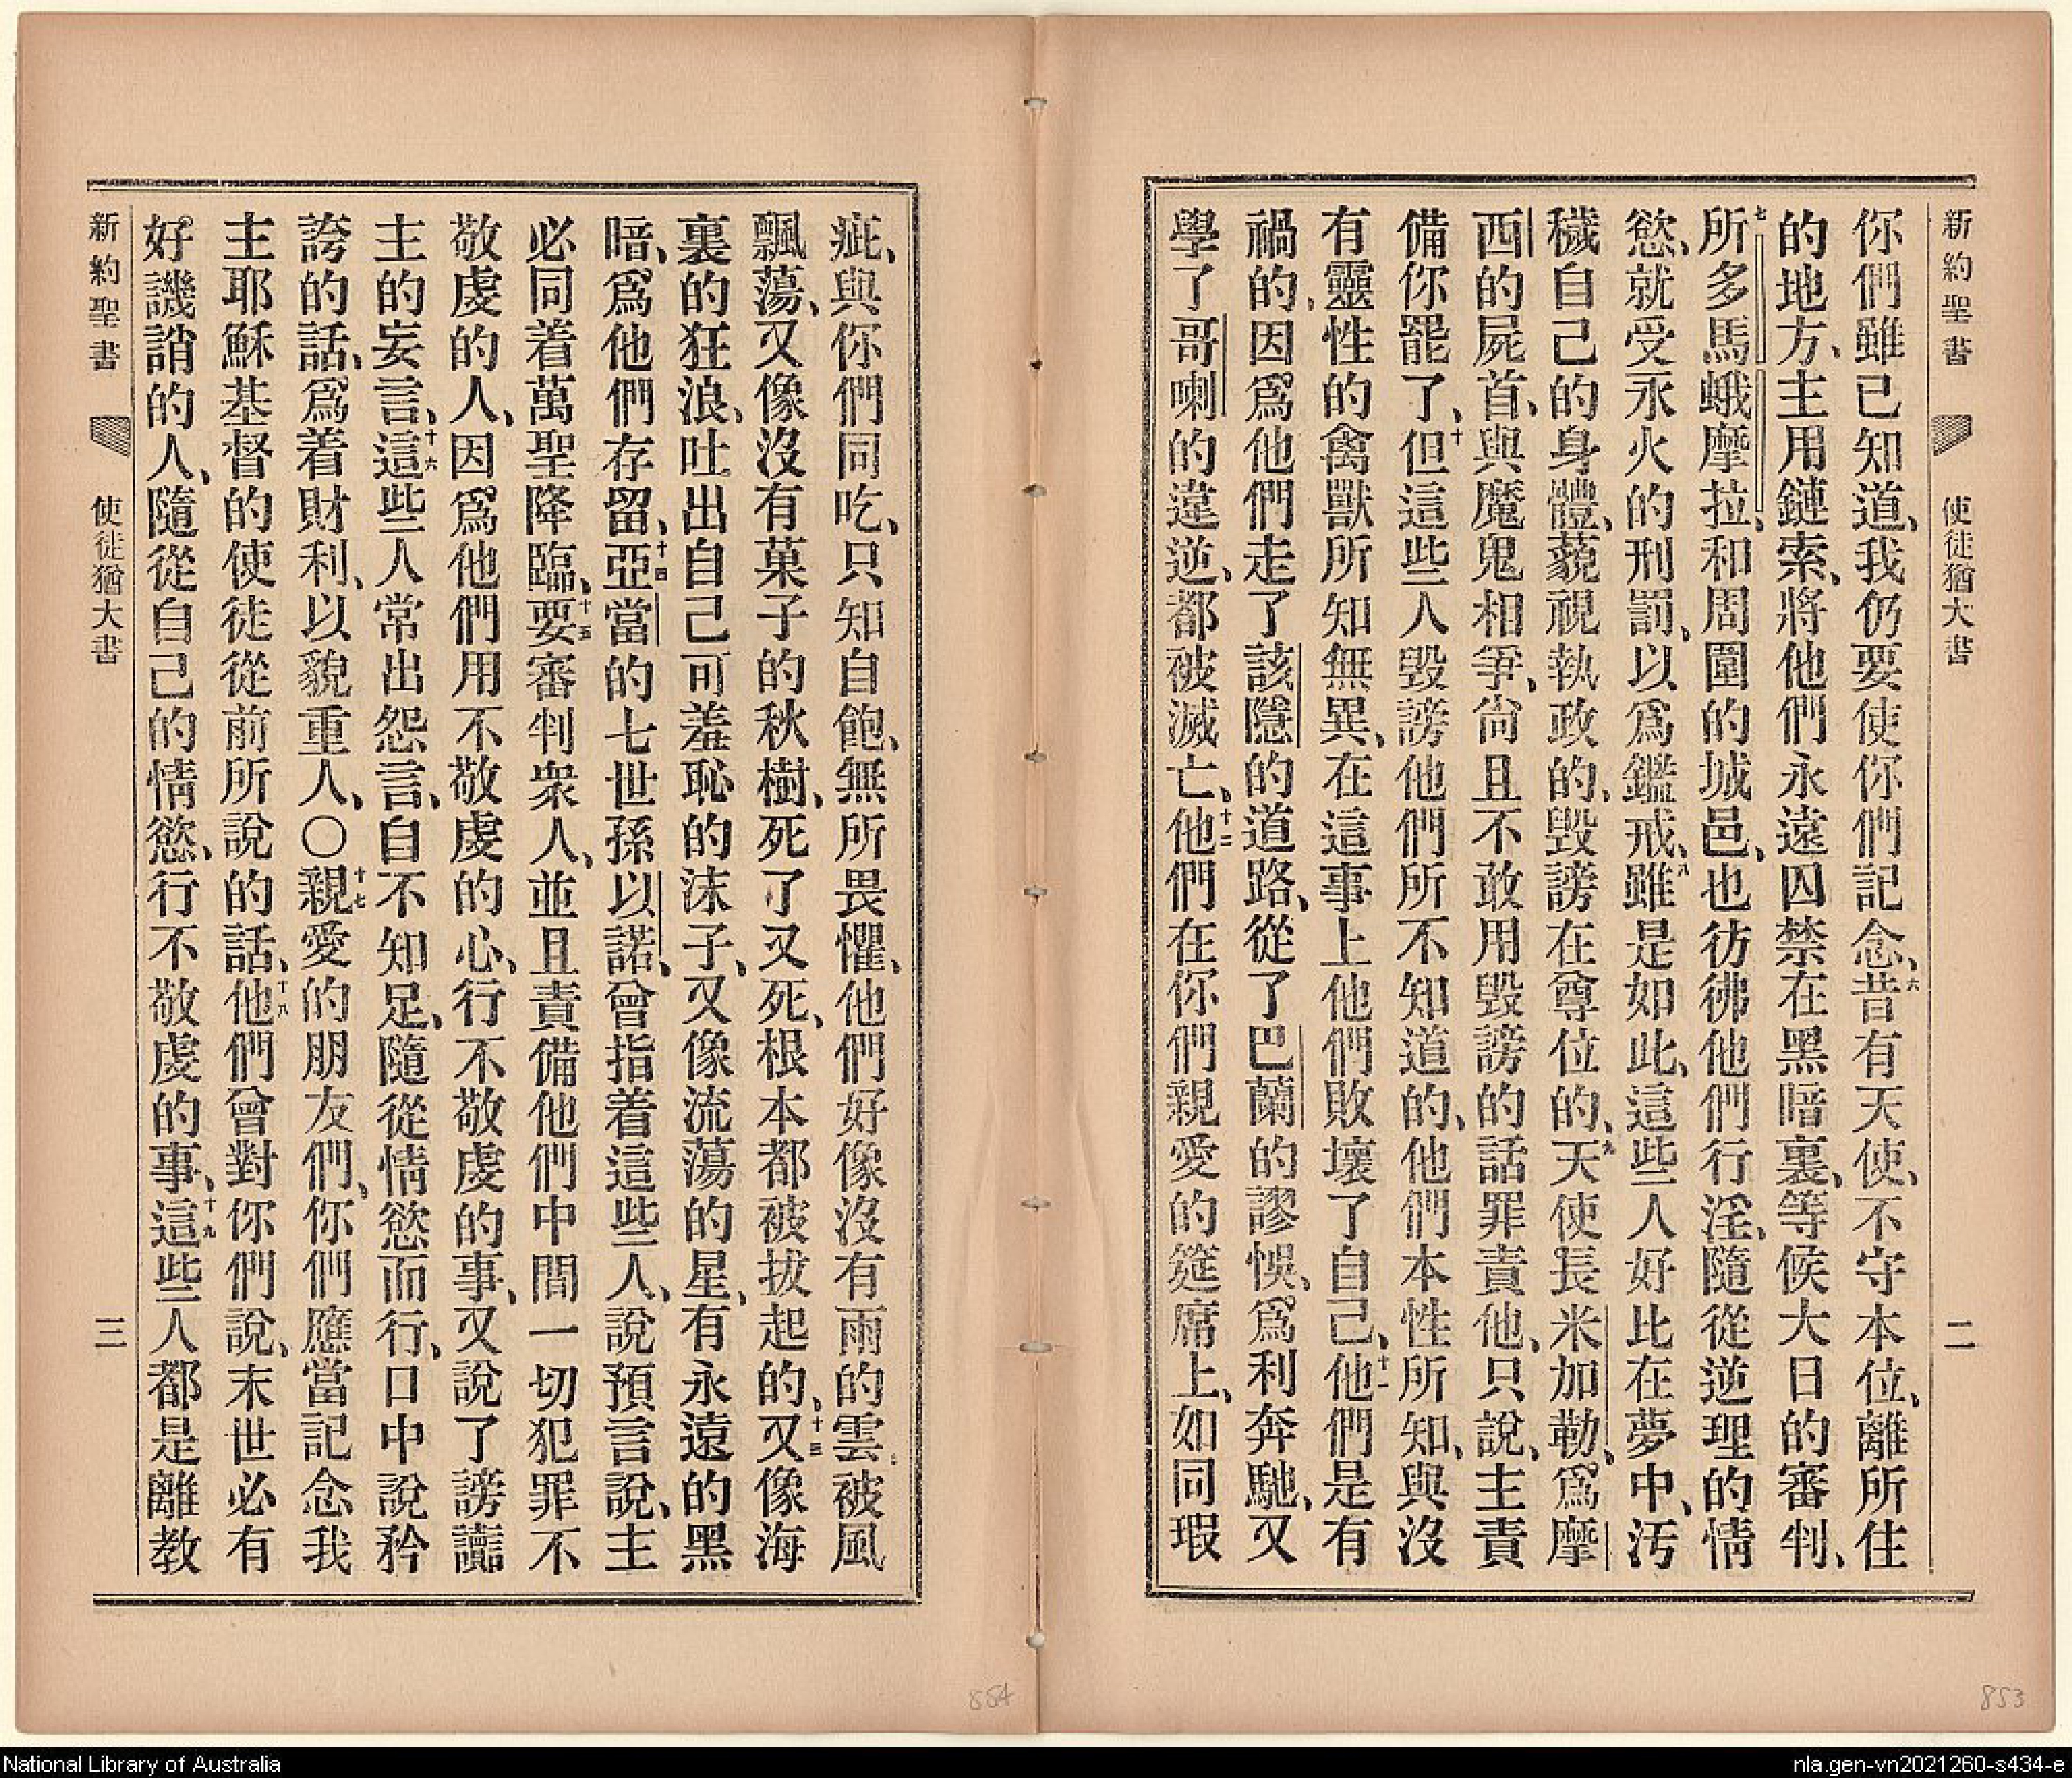 新約聖書 使徒猶大書 二
你們雖已知道、我仍要使你們記念、六昔有天使、不守本位、離所住
的地方、主用鏈索、將他們永遠囚禁在黑暗裏、等候大日的審判、
七所多馬蛾摩拉、和周圍的城邑、也彷彿他們行淫、隨從逆理的情
慾、就受永火的刑罰、以爲鑑戒、八雖是如此、這些人好比在夢中、汚
穢自己的身體、藐視執政的、毀謗在尊位的、九天使長米加勒、爲摩
西的屍首、與魔鬼相爭、尙且不敢用毀謗的話罪責他、只說、主責
備你罷了、十但這些人毀謗他們所不知道的、他們本性所知、與沒
有靈性的禽獸所知無異、在這事上他們敗壞了自己、十一他們是有
禍的、因爲他們走了該隱的道路、從了巴蘭的謬悞、爲利奔馳、又
學了哥喇的違逆、都被滅亡、十二他們在你們親愛的筵席上、如同瑕
疵、與你們同吃、只知自飽、無所畏懼、他們好像沒有雨的雲、被風
飄蕩、又像沒有菓子的秋樹、死了又死、根本都被拔起的、十三又像海
裏的狂浪、吐出自己可羞恥的沫子、又像流蕩的星、有永遠的黑
暗、爲他們存留、十四亞當的七世孫以諾、曾指着這些人、說預言說、主
必同着萬聖降臨、十五要審判衆人、並且責備他們中間一切犯罪不
敬虔的人、因爲他們用不敬虔的心、行不敬虔的事、又說了謗讟
主的妄言、十六這些人常出怨言、自不知足、隨從情慾而行、口中說矜
誇的話、爲着財利、以貌重人、〇十七親愛的朋友們、你們應當記念我
主耶穌基督的使徒從前所說的話、十八他們曾對你們說、末世必有
好譏誚的人、隨從自己的情慾、行不敬虔的事、十九這些人都是離教
新約聖書 使徒猶大書 三
884 853
National Library of Australia
nla.gen-vn2021260-s434-e